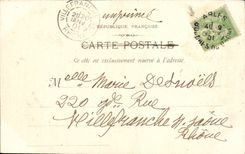 imprimé
RÉPUBLIQUE FRANÇAISE
CARTE POSTALE
Ce côté est exclusivement réservé à l'adresse.
Melle Marie
220 gde Rue
Villefranche s/ Saône
Rhône
ARLES